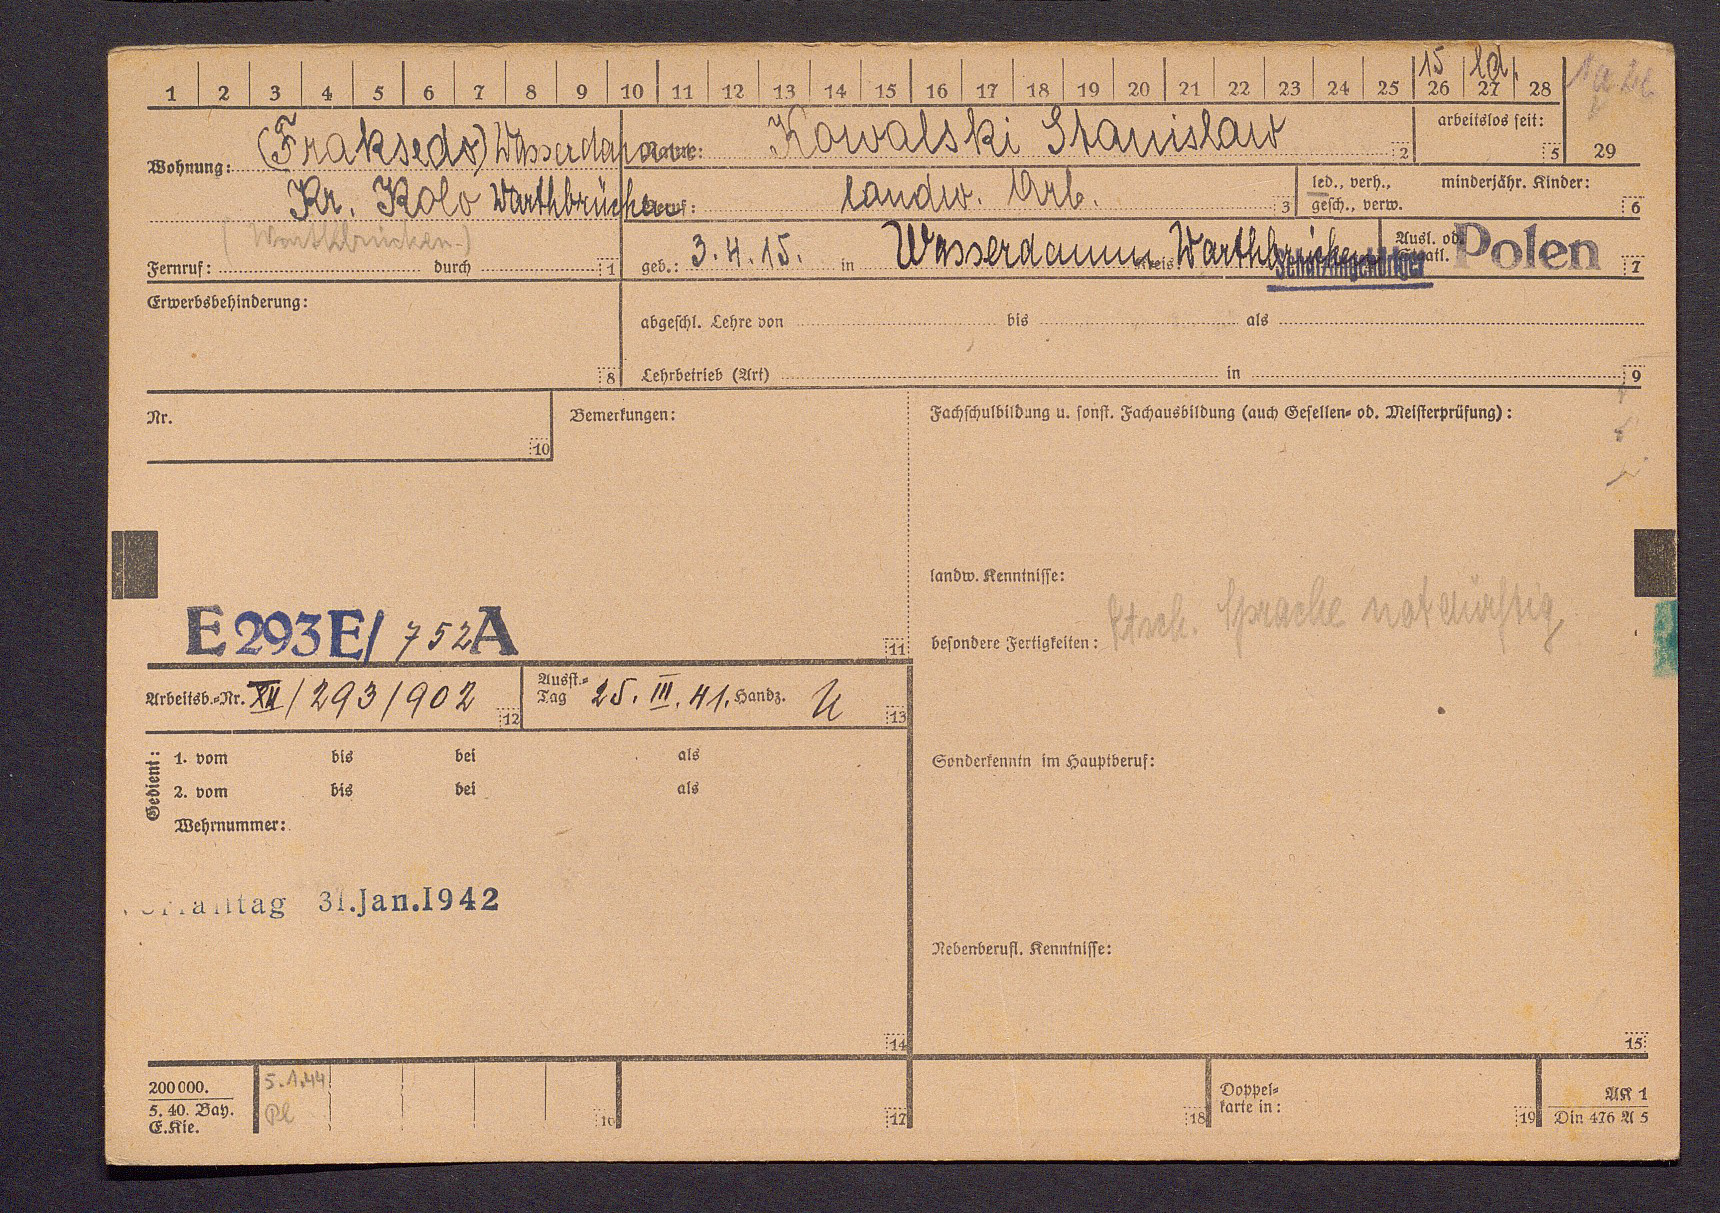 1 2 3 4 5 6 7 8 9 10 11 12 13 14 15 16 17 18 19 20 21 22 23 24 25 26 27 28 29
15 ld.
arbeitslos seit: 5
Wohnung: (Fraksedo) Wasserdamm
Kr. Kolo Warthbrücken
(Warthbrücken)
Fernruf: durch 1
Name: Kowalski Stanislaw 2
Beruf: landw. Arb. 3
led., verh., minderjähr. Kinder:
gesch., verw. 6
geb.: 3.4.15. in Wasserdamm Kreis Warthbrücken
Ausl. od.
Staatl. Polen 7
Schutzangehöriger
Erwerbsbehinderung: 8
abgeschl. Lehre von bis als
Lehrbetrieb (Art) in 9
Nr. 10
Bemerkungen:
Fachschulbildung u. sonst. Fachausbildung (auch Gesellen- od. Meisterprüfung):
landw. Kenntnisse:
besondere Fertigkeiten: Dtsch. Sprache notdürftig
E 293 E/ 752 A 11
Arbeitsb.-Nr. XII/293/902 12
Ausst.-
Tag 25. III. 41. Handz. 13
Gedient:
1. vom bis bei als
2. vom bis bei als
Wehrnummer:
Sonderkenntn im Hauptberuf:
31. Jan. 1942
Nebenberufl. Kenntnisse:
14
15
200 000.
5. 40. Bay.
E. Kie.
5.1.44
Pl
16
17
18
Doppel-
karte in: 19
AK 1
Din 476 A 5